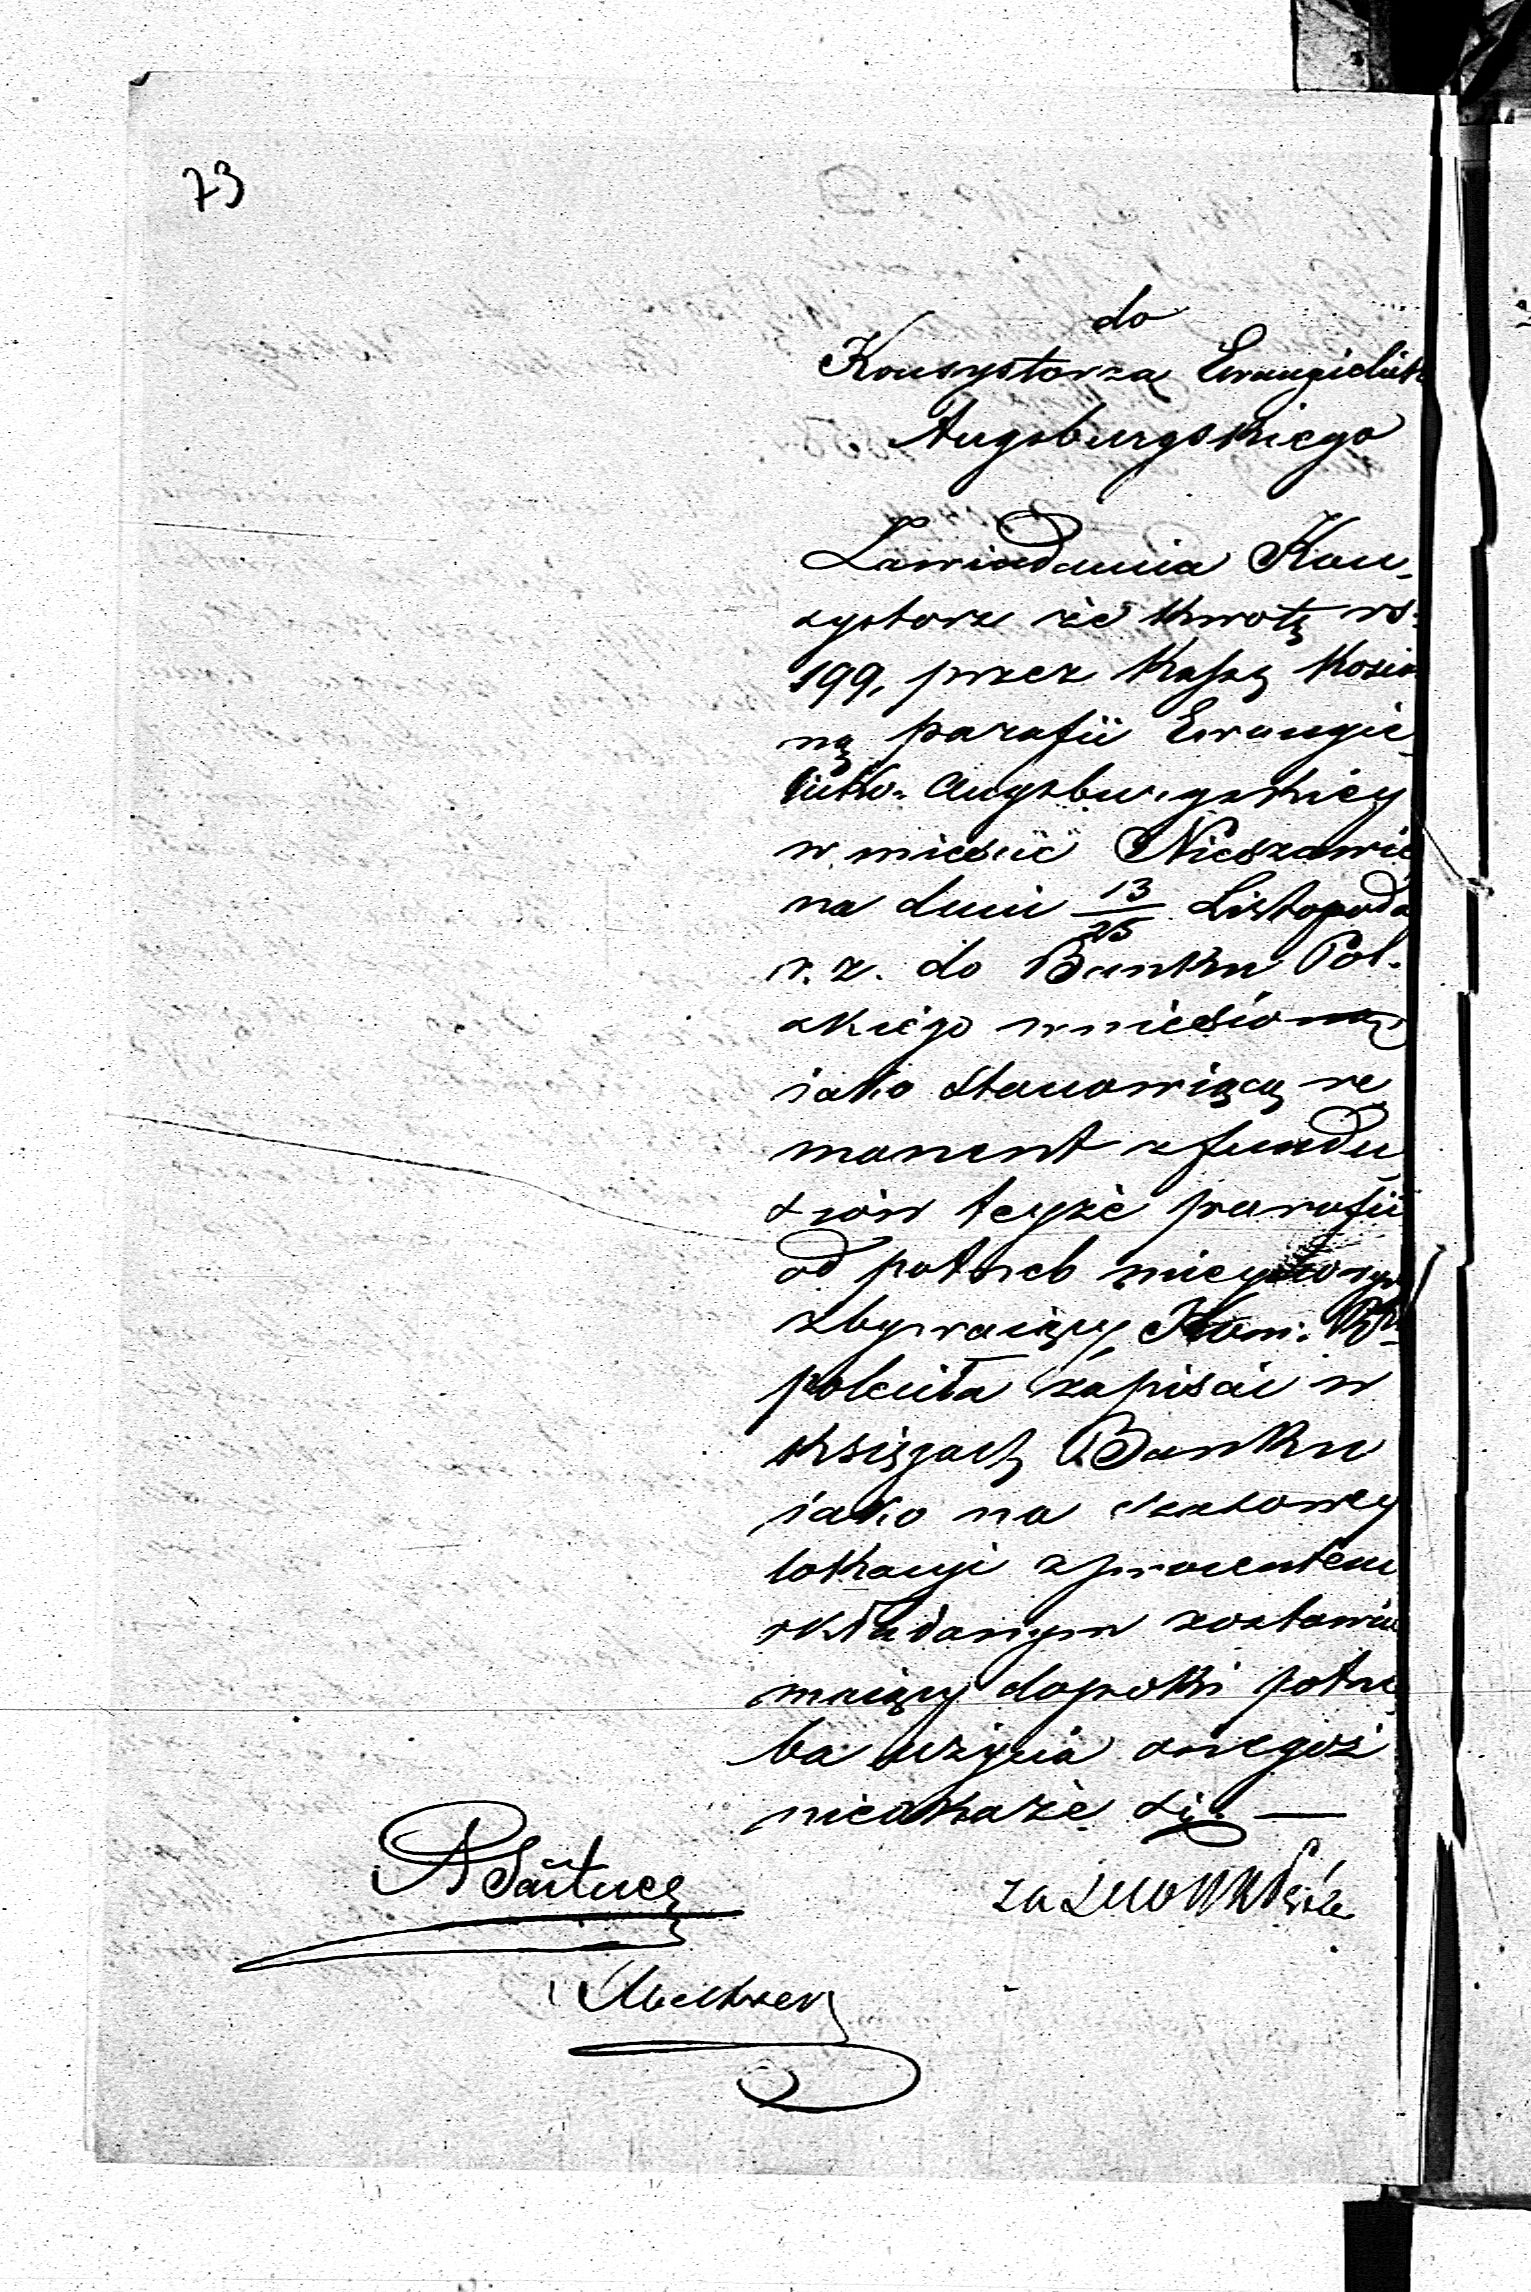 73
do
Konsystorza Ewangielick
Augsburgskiego
Zawiadamia Kon-
systorz że kwotę rs.
199, przez Kassę Kościel
ną parafii Ewangie-
licko-Augsburgskiey
w mieście Nieszawie
na dniu 13/25 Listopada
r. z. do Banku Pol-
skiego wniesioną
iako stanowiącą re
manent z fundu
szów teyże parafii
od potrzeb mieyscowych
zbywaiący, Kom:
poleciła zapisać w
księgach Banku
iako na czasowey
lokacyi z procentem
składanym zostawać
maiący dopóki potrze
ba użycia onegoż
nieokaże się. —